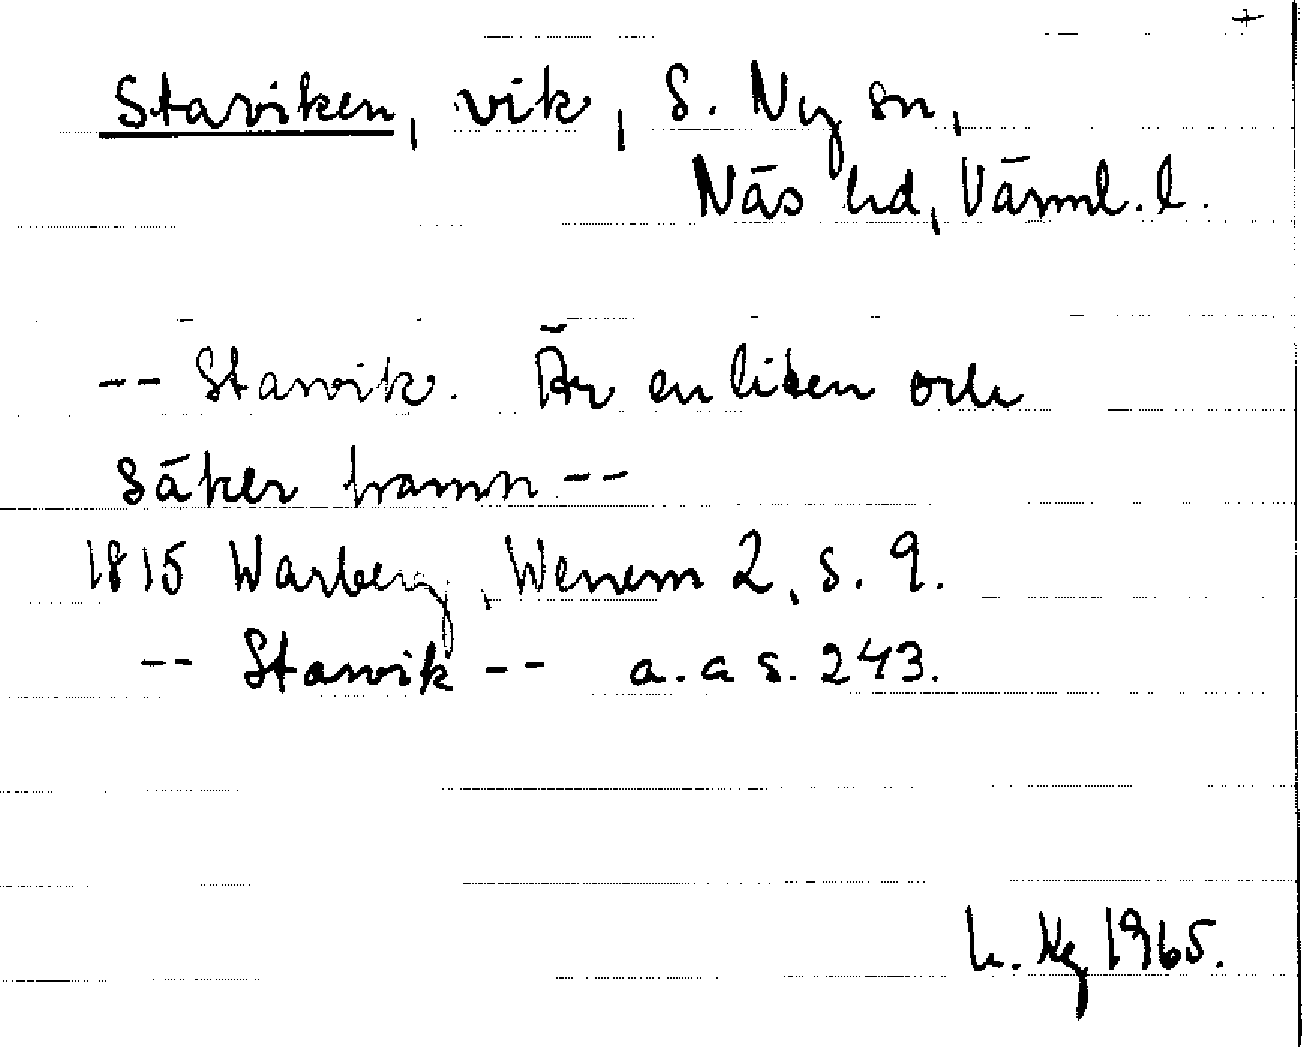 +
Staviken, vik, S. Ny sn,
Näs hd, Värml. l.
-- Starvik. Är en liten och
säker hamn --
1815 Warberg, Wenern 2, s. 9.
-- Starvik -- a. a s. 243.
1965.